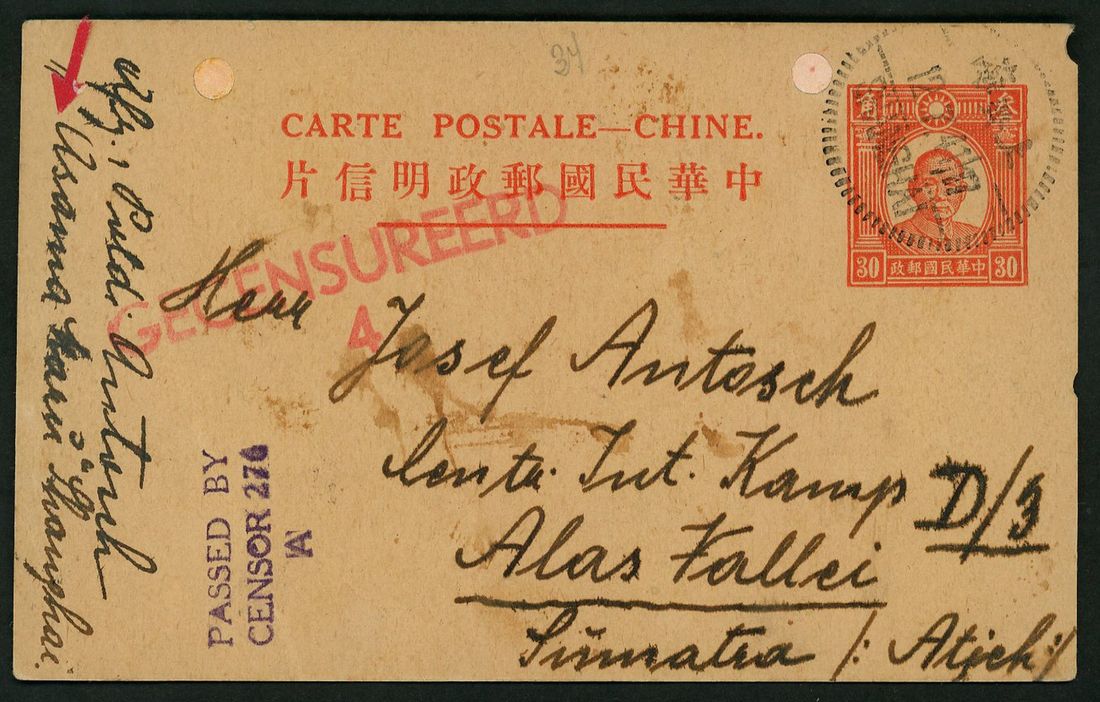 34
CARTE POSTALE—CHINE.
中華民國郵政明信片
GECENSUREERD
4
叁
30 中華民國郵政 30
SHANGHAI
Herr
Josef Antosch
Centr. Int. Kamp D/3
Alas Vallei
Sumatra /: Atjeh :/
PASSED BY
CENSOR 276
A
Antosch
Shanghai.